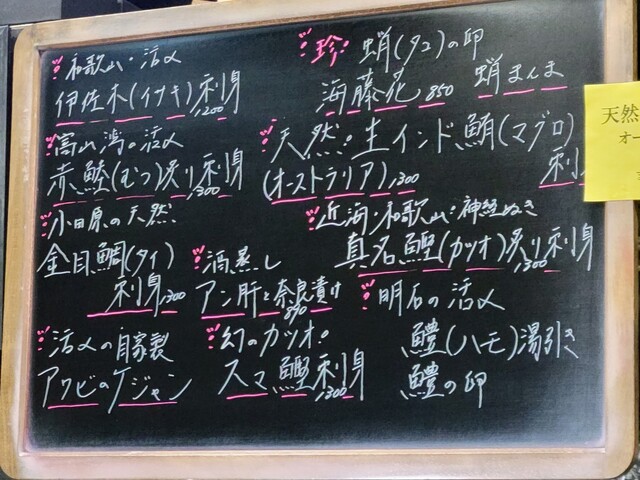 和歌山・活〆
伊佐木(イサキ)刺身 1,200
富山湾の活〆
赤鯥(むつ)炙り刺身 1,300
小田原の天然
金目鯛(タイ)
刺身 1,300
活〆の自家製
アワビのケジャン
酒蒸し
アン肝と奈良漬け
890
幻のカツオ!
スマ鰹刺身
1,300
珍! 蛸(タコ)の卵
海藤花 850 蛸まんま
天然!生インド鮪(マグロ)
(オーストラリア) 1,300 刺
近海 和歌山・神経ぬき
真名鰹(カツオ)炙り刺身
1,300
明石の活〆
鱧(ハモ)湯引き
鱧の卵
天然
オー